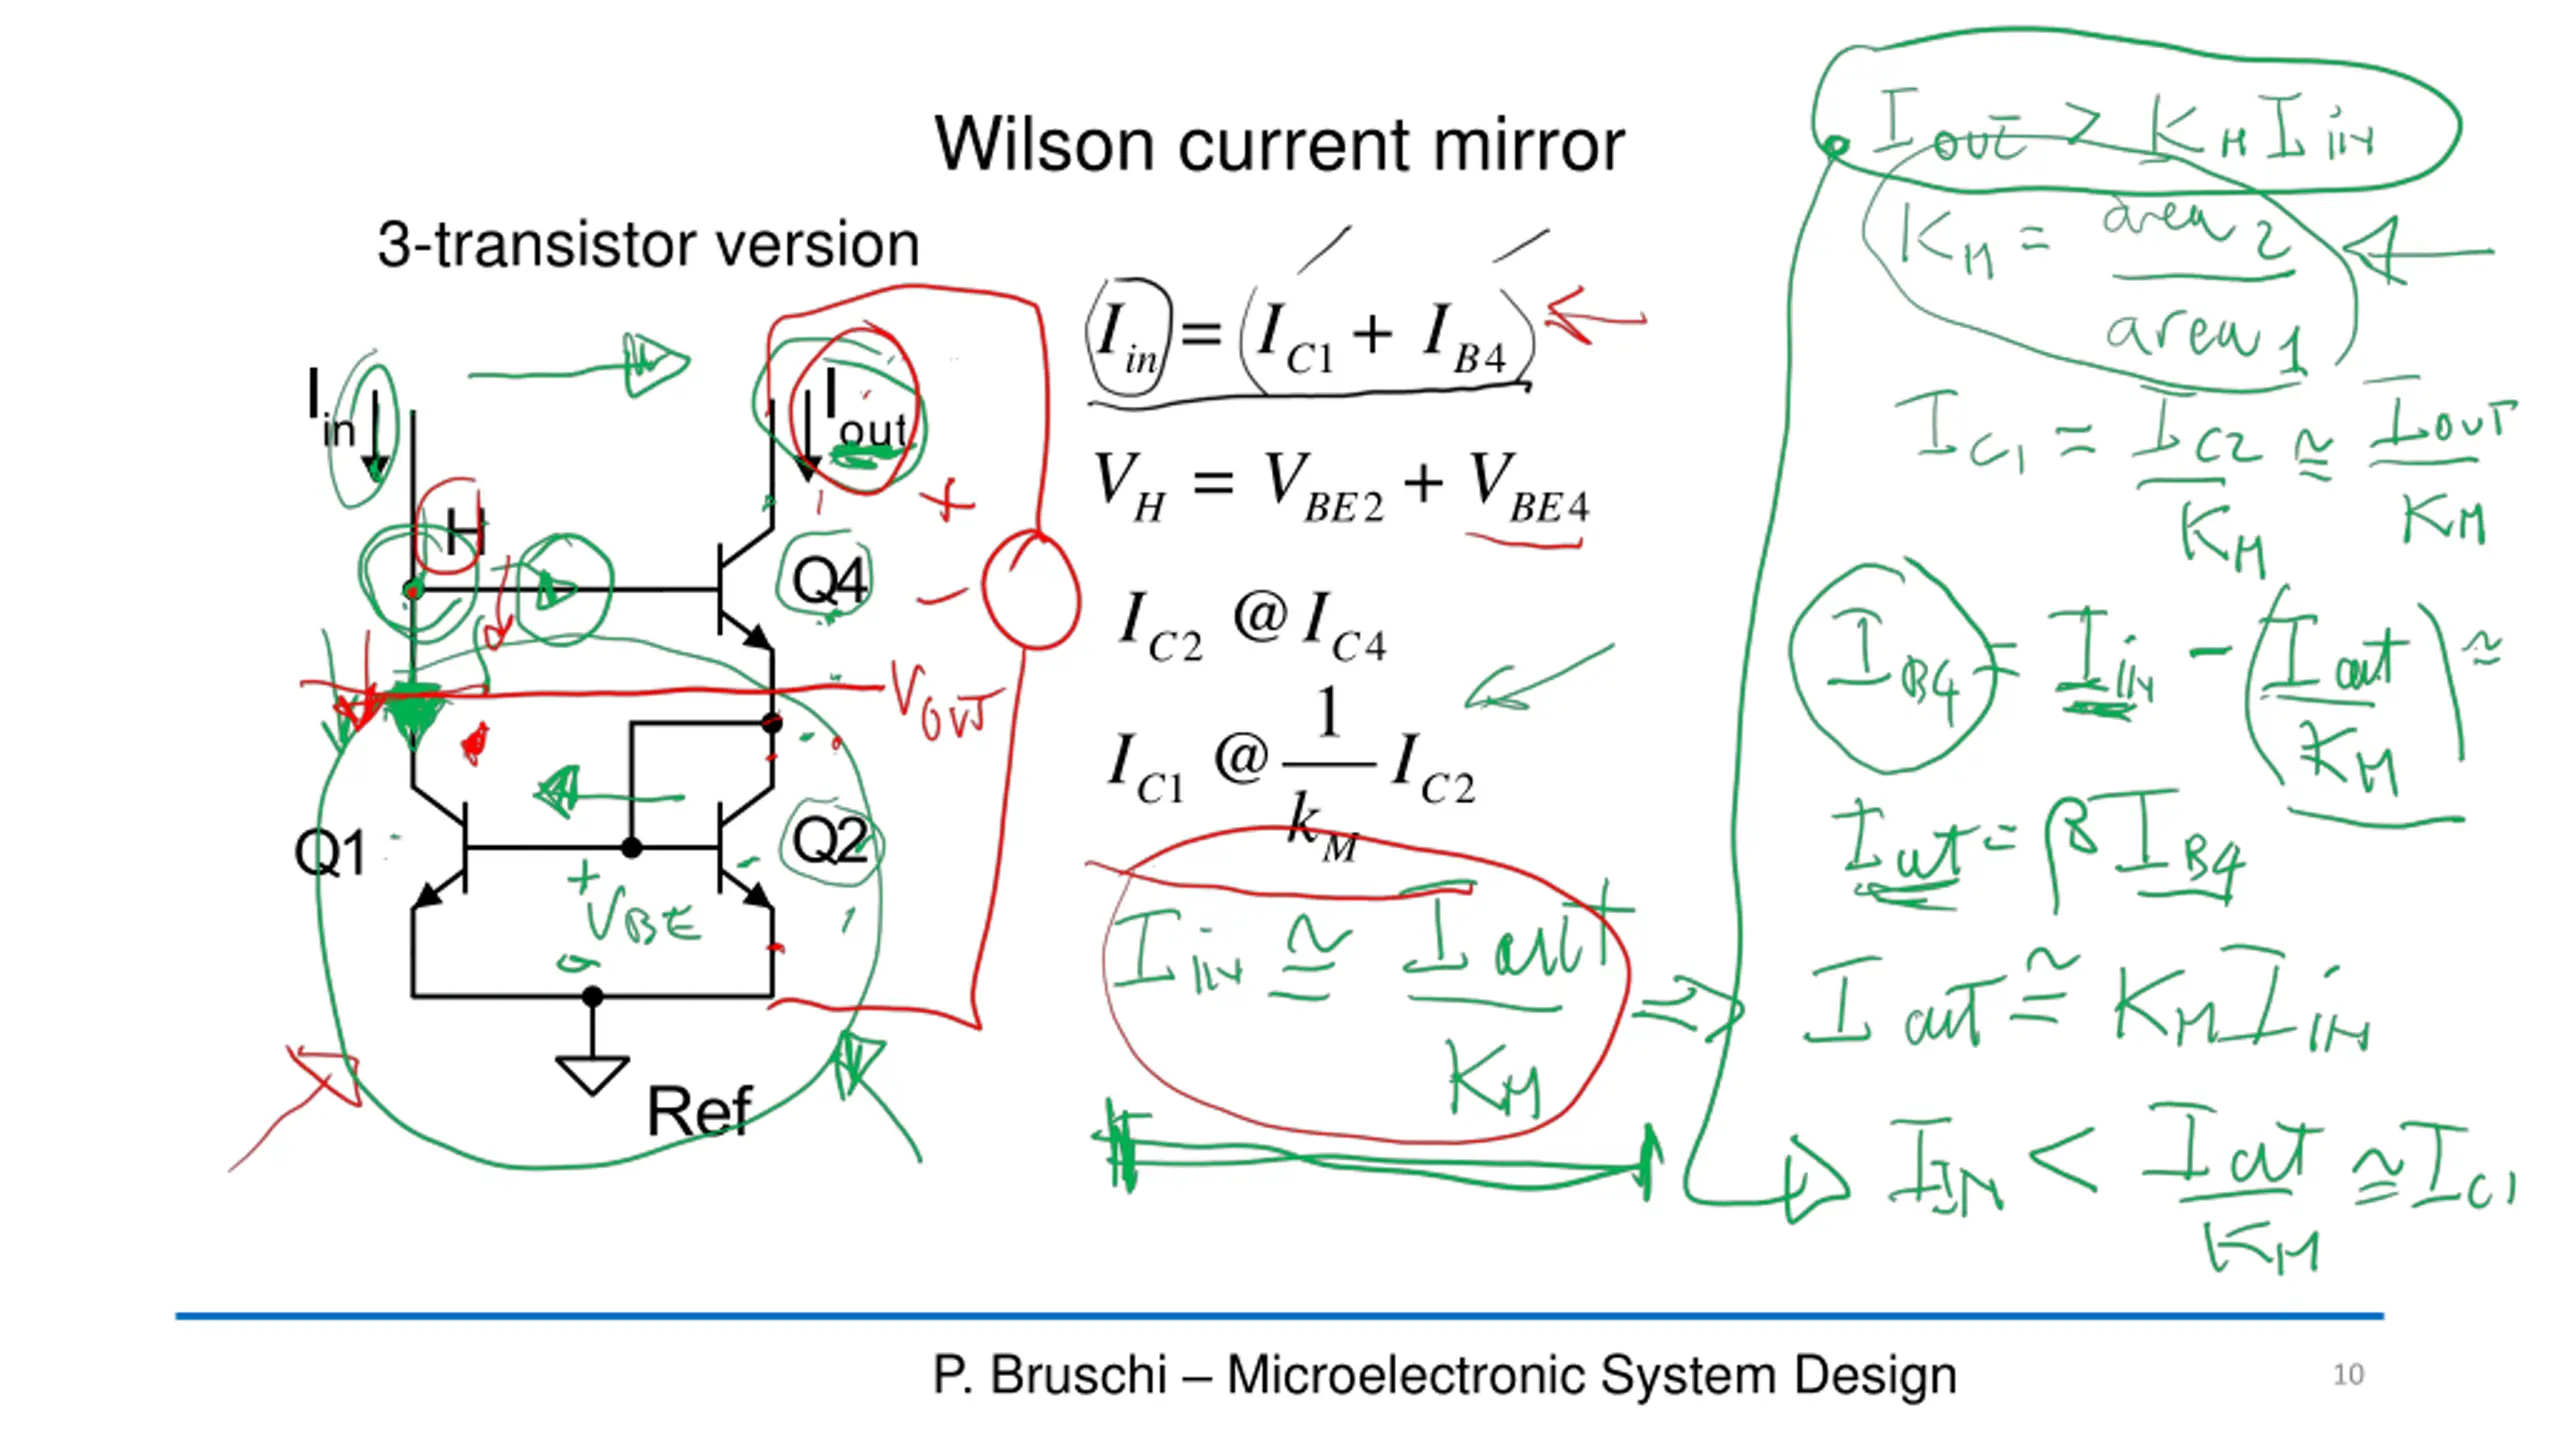 Wilson current mirror
3-transistor version
I_in
I_out
H
Q4
Q1
Q2
+
V_BE
-
Ref
+
-
V_OUT
I_in = I_C1 + I_B4
V_H = V_BE2 + V_BE4
I_C2 @ I_C4
I_C1 @ 1/k_M I_C2
I_IN ≅ I_out / K_M
I_OUT > K_M I_IN
K_M = area 2 / area 1
I_C1 = I_C2 / K_M ≅ I_OUT / K_M
I_B4 = I_IN - (I_out / K_M) ≅
I_out = β I_B4
I_out ≅ K_M I_IN
I_IN < I_out / K_M ≅ I_C1
P. Bruschi – Microelectronic System Design
10